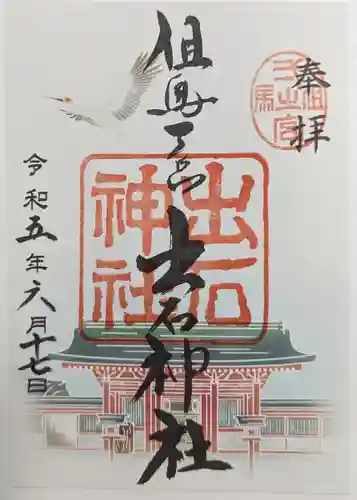 奉拝
但馬
一之宮
但馬一宮 出石神社
出石
神社
令和五年六月十七日